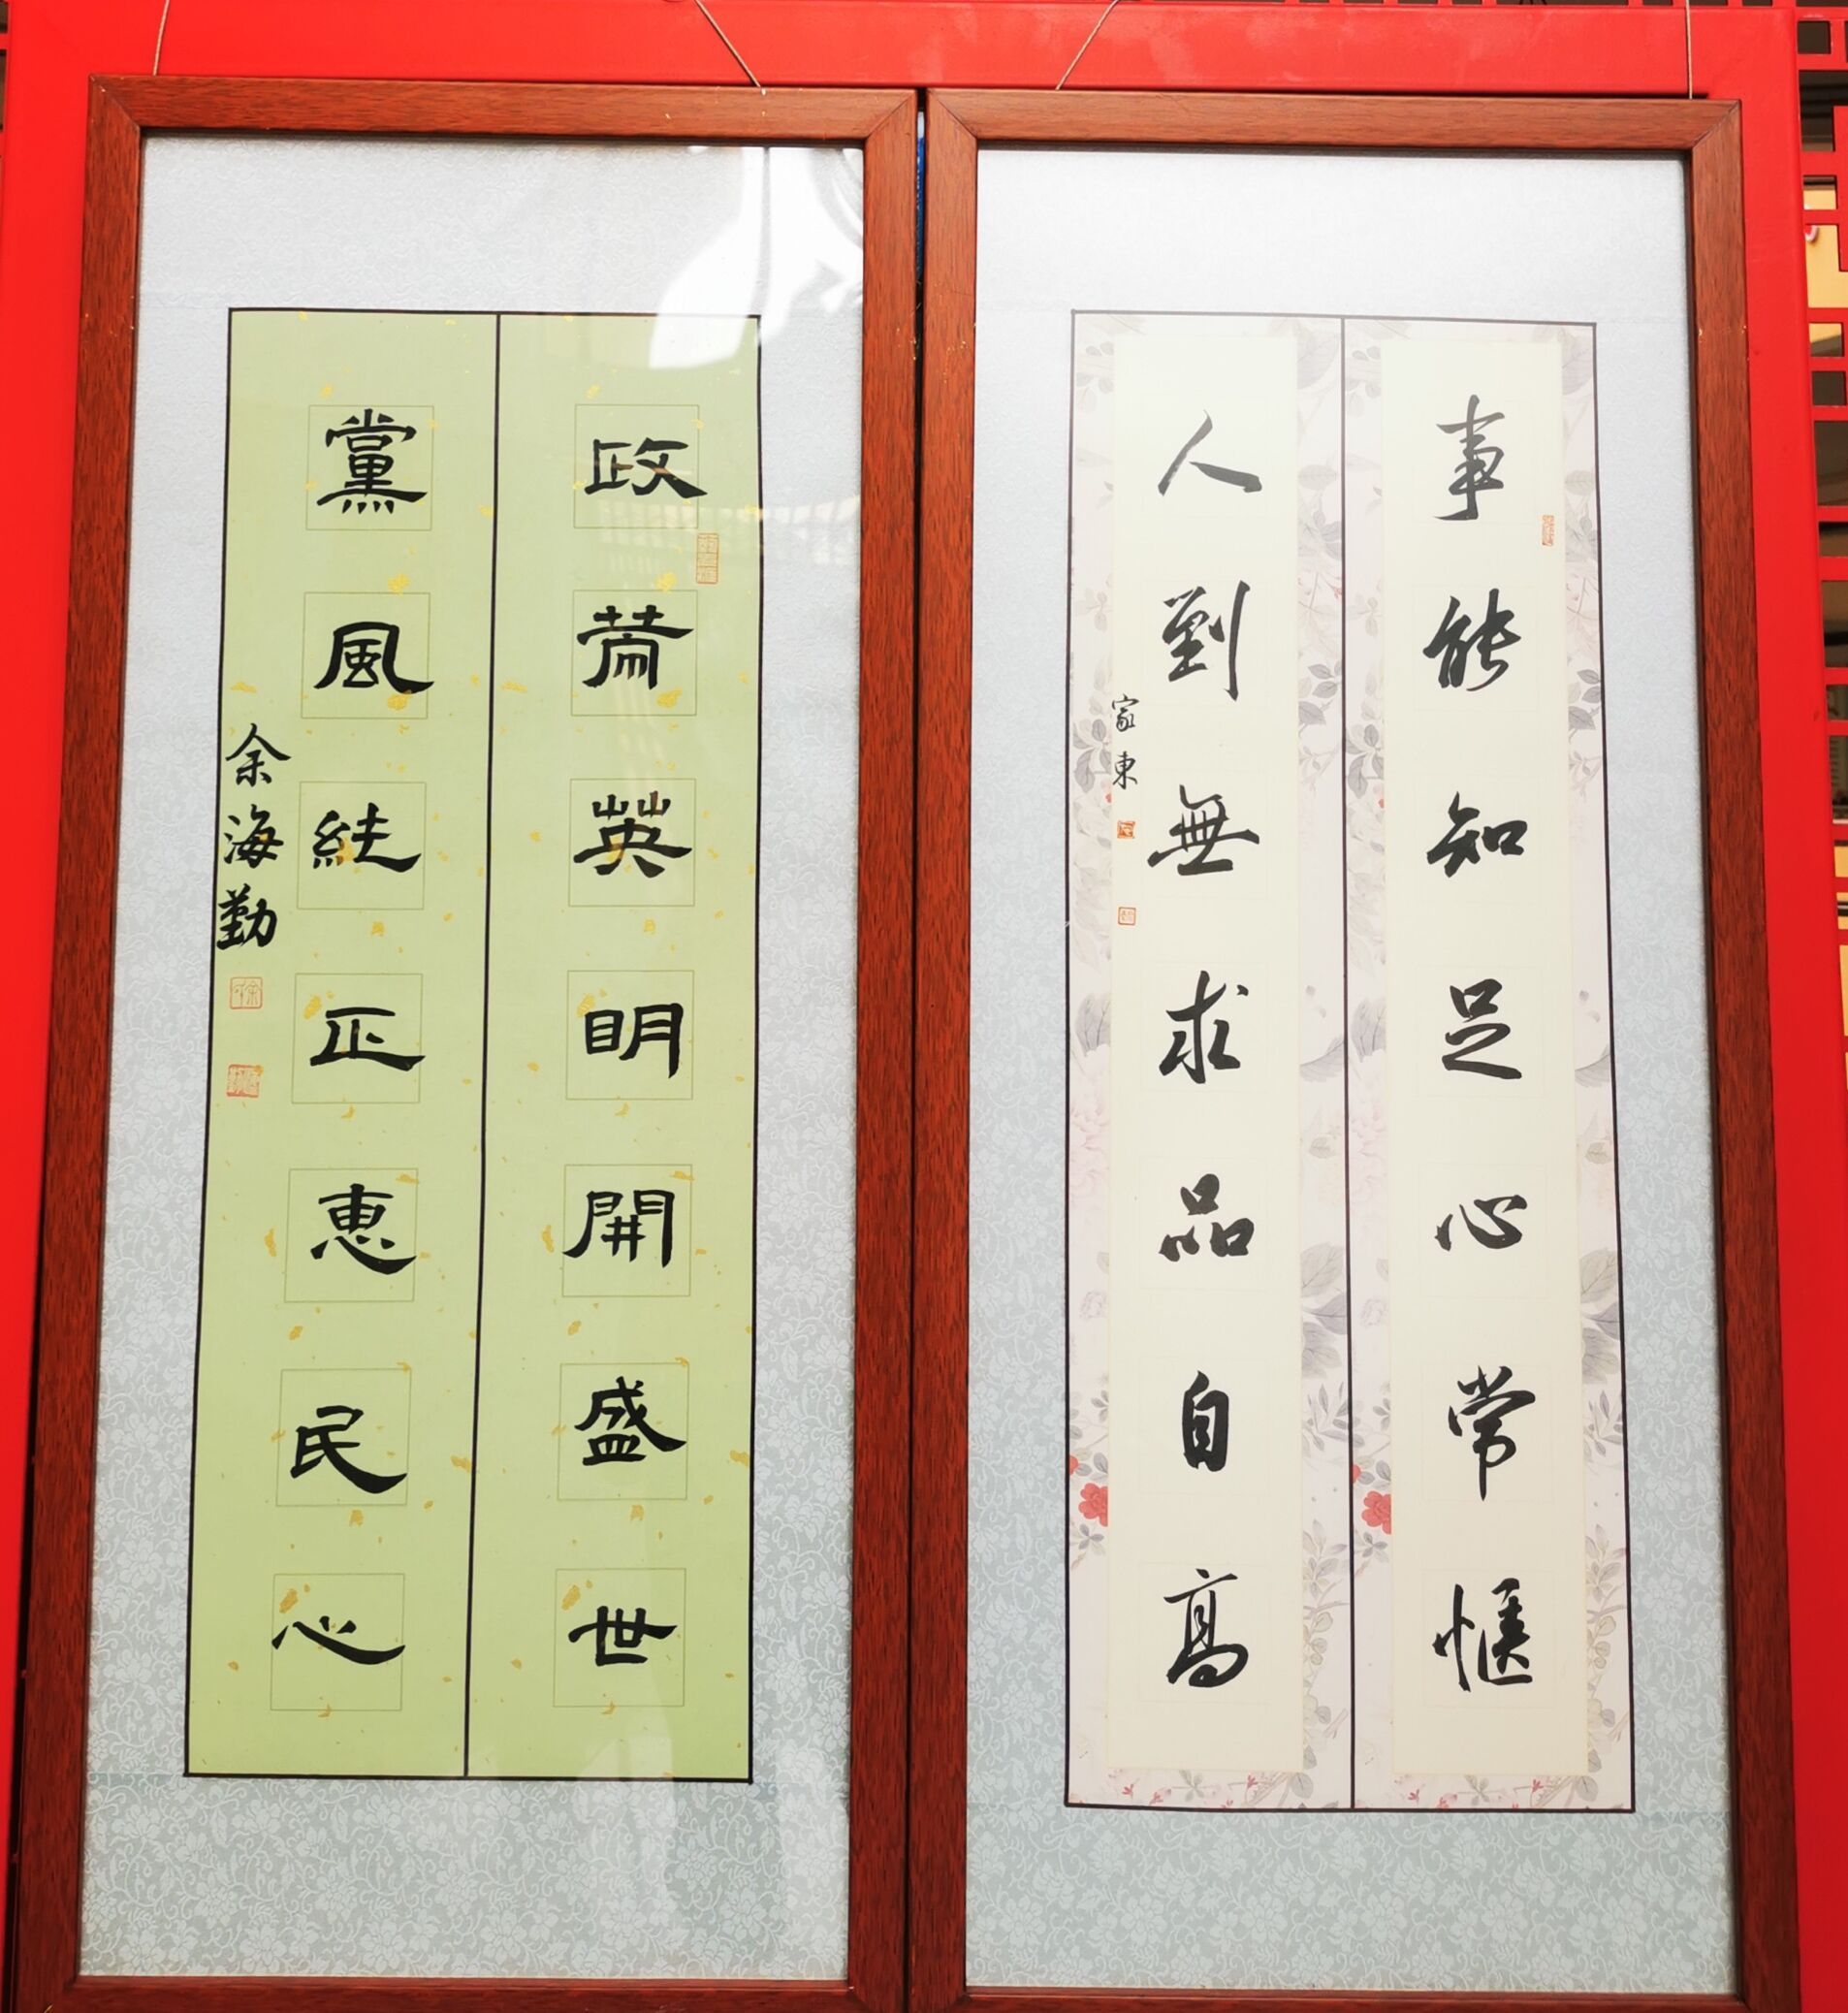 事能知足心常愜
人到無求品自高
政策英明開盛世
黨風純正惠民心
余海勤